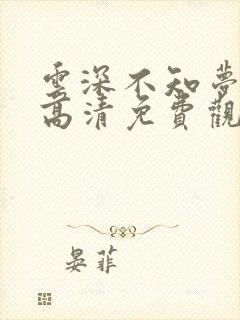 雲深不知夢
高清免費觀
晏菲